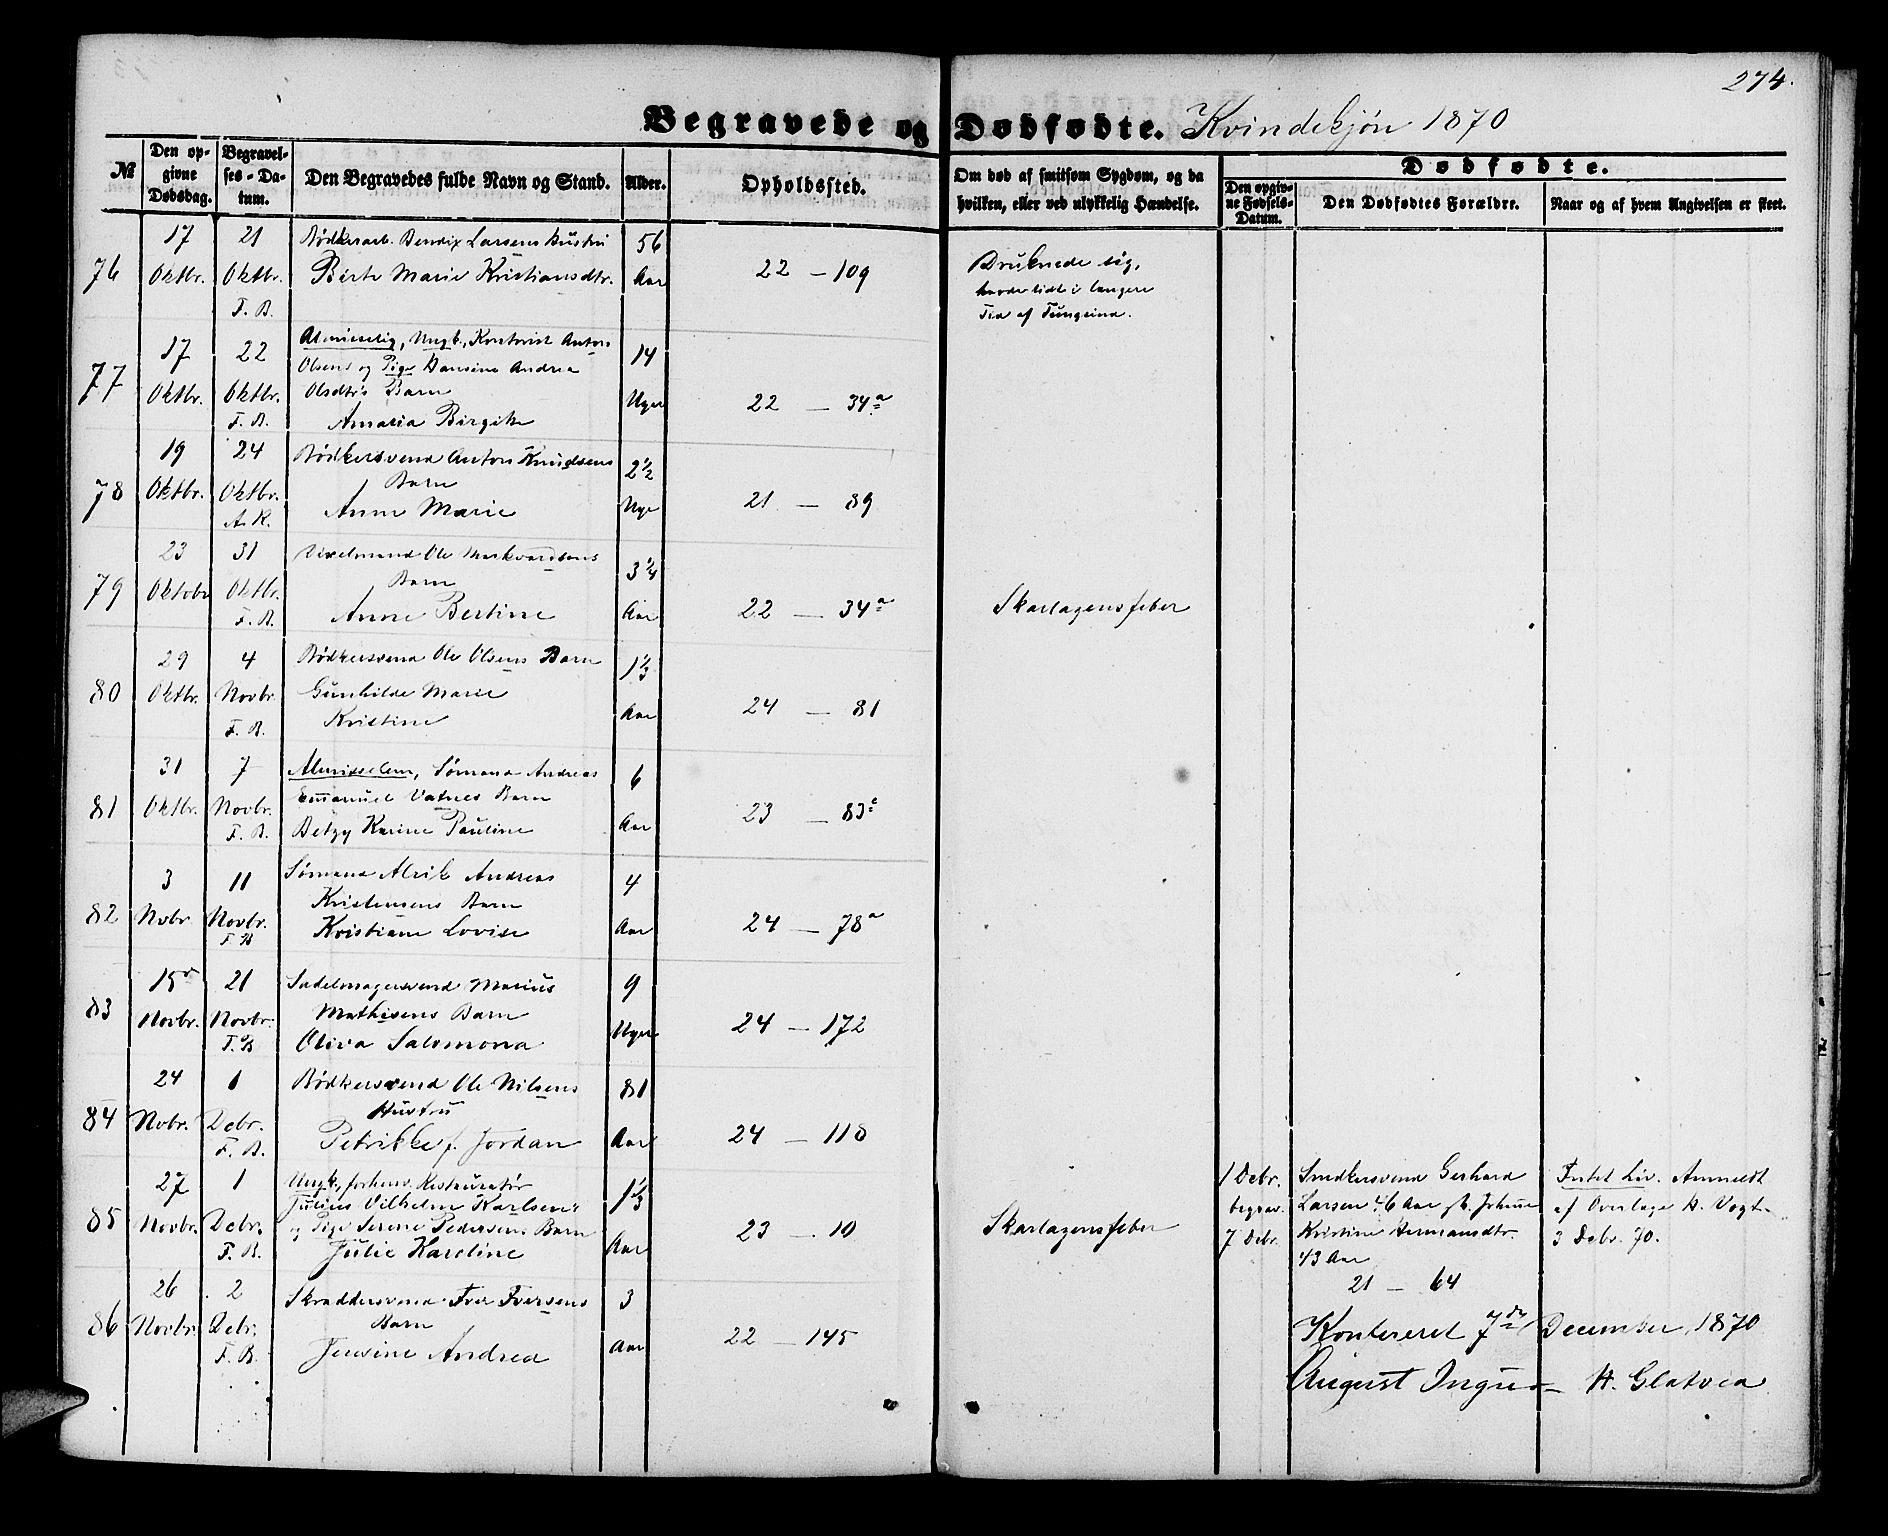 274.
Begravede og Dødfødte. Kvindekjøn 1870
№
Den opgivne Dødsdag.
Begravelses-Datum.
Den Begravedes fulde Navn og Stand.
Alder.
Opholdssted.
Om død af smitsom Sygdom, og da hvilken, eller ved ulykkelig Hændelse.
Dødfødte.
Den opgivne Fødsels-Datum.
Den Dødfødtes Forældre.
Naar og af hvem Angivelsen er skeet.
76
17 Oktbr.
21 Oktbr. F. B.
Bødkerarb. Bendix Larsens Hustru
Berte Marie Kristiansdtr.
56 Aar
22 — 109
Druknede sig,
havde lidt i længere
Tid af Tungsind.
77
17 Oktbr.
22 Oktbr. F. B.
Almisselig, Ungk., Kontorist Anton
Olsens og Pige Hansine Andrea
Olsdtr's Barn
Amaria Birgitte
14 Uger
22 — 34a
78
19 Oktbr.
24 Oktbr. A. K.
Bødkersvend Anton Knudsens
Barn
Anne Marie
2½ Uge
21 — 89
79
23 Oktobr
31 Oktbr. F. B.
Ole Markvardsens
Barn
Anne Bertine
3¼ Aar
22 — 34a
Skarlagensfeber
80
29 Oktbr.
4 Novbr. F. B.
Bødkersvend Ole Olsens Barn
Gunhilde Marie
Kristine
1⅓ Aar
24 — 81
81
31 Oktbr.
7 Novbr. F. B.
Almisselem, Sømand Andreas
Emanuel Vatnes Barn
Betzy Karine Pauline
6 Aar
23 — 83c
82
3 Nvbr.
11 Novbr. F B
Sømand Alrik Andreas
Kristensens Barn
Kristiane Lovise
4 Aar
24 — 78a
83
15 Novbr.
21 Novbr. F. B
Sadelmagersvend Marius
Mathisens Barn
Oliva Salomona
9 Uger
24 — 172
84
24 Nvbr.
1 Debr. F. B.
Bødkersvend Ole Nilsens
Hustru
Petrikke f. Jordan
81 Aar
24 — 118
85
27 Novbr.
1 Debr. F. B.
Ungk., forhenv. Restauratør
Julius Vilhelm Karlsens
og Pige Serene Pedersens Barn
Julie Karoline
1⅓ Aar
23 — 10
Skarlagensfeber
1 Debr.
begrav.
7 Debr.
Smedkersvend Gerhard
Larsen 46 Aar
Kristine Hermansdtr.
43 Aar
21 — 64
Intet Liv. Anmeldt
af Overlæge H. Vogt
3 Debr. 70.
86
26 Novbr.
2 Debr. F. B.
Skræddersvend Iver Iversens
Barn
Jensine Andrea
3 Aar
22 — 145
Konfereret 7de December 1870
August H. Glatved